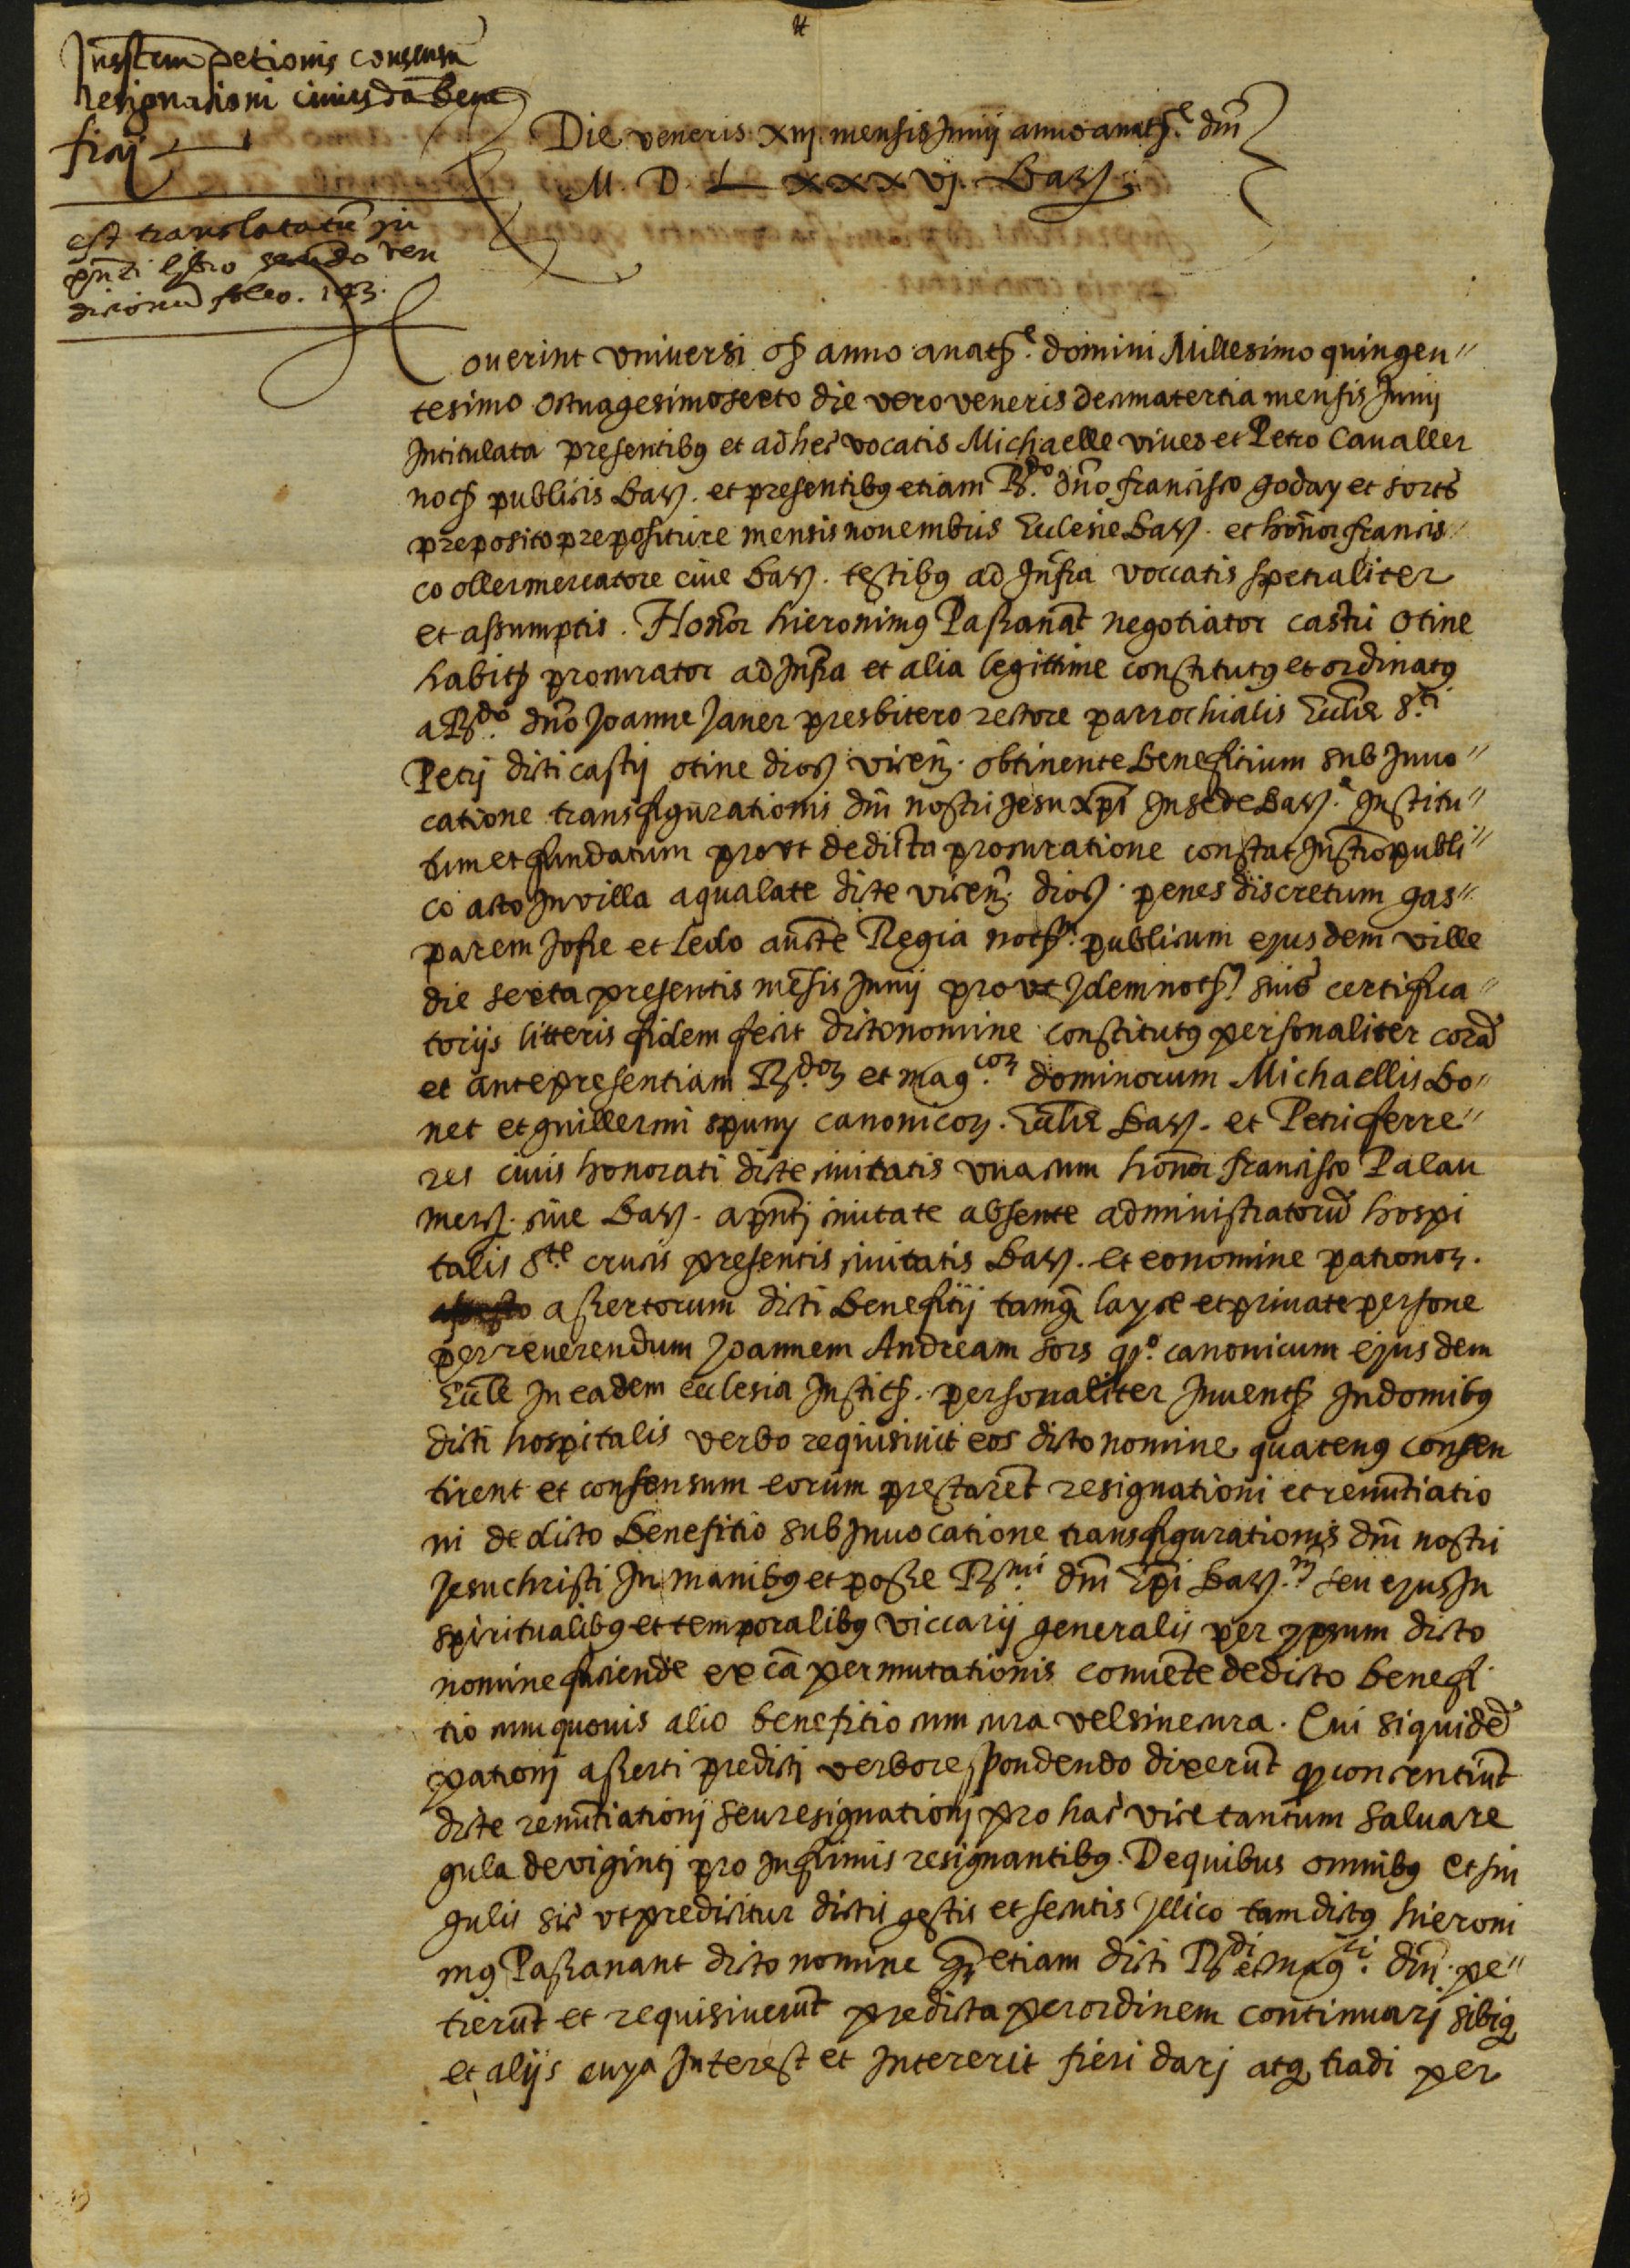 Instrum petionis consensu
resignationi cuiusdā bene
ficij
est translatatū in
pnti libro secūdo ven
dicionū foleo. 123.
Die veneris xiij. mensis Junij anno a natᵉ. dnī
M. D. L xxxvj. Barᵉ
overint vniversi qᵈ anno a natᵉ. domini Millesimo quingen"
tesimo octuagesimo sexto die vero veneris decima tertia mensis Junij
Intitulata presentibus et ad hec vocatis Michaelle vives et Petro Cavaller
notᵉ publicis Barᵉ. et presentibus etiam Rᵈᵒ. dnō francisco goday et sorts
preposito prepositure mensis novembris Ecclesie Barᵉ. et honor francis
co oller mercatore cive Barᵉ. testibus ad Infra voccatis spetialiter
et assumptis. Honor hieronimus Passanant negotiator castri Otine
habitᵉ procurator ad Infra et alia legittime constitutus et ordinatus
a Rᵈᵒ. dnō Joanne Janer presbitero rectore parrochialis Ecclie Sᵗⁱ
Petrj dicti castrj otine diocᵉ vicen. obtinente benefitium sub Invo"
catione transfigurationis dnī nostri Jesu xpī In sede Barᵉ. Institu"
tum et fundatum prout de dicta procuratione constat Instrō publi"
co acto In villa aqualate dicte vicen. diocᵉ. penes discretum gas"
parem Jofre et Ledo aucte Regia notᵐ. publicum ejusdem ville
die sexta presentis mēsis Junij prout Idem notˢ. suis certifica"
toriis litteris fidem fecit dicto nomine constitutus personaliter corā
et ante presentiam Rᵈᵒʳ et magᶜᵒʳ. dominorum Michaellis Bo"
net et guillermi spuny canonicoʳ. Ecclie Barᵉ. et Petri ferre"
res civis honorati dicte civitatis vna cum honor francisco Palau
merᵉ. cive Barᵉ. a pntj civitate absente administratorū hospi
talis Sᵗᵉ crucis presentis civitatis Barᵉ. et eo nomine patronoʳ.
assertorum dicti benefitij tamq̄ layce et private persone
per reverendum Joannem Andream sors qᵒ. canonicum ejusdem
Eccle In eadem ecclesia Institᵉ. personaliter Inventᵉ In domibus
dicti hospitalis verbo requisivit eos dicto nomine quatenus consen
tirent et consensum eorum prestarēt resignationi et renūtiatio
ni de dicto benefitio sub Invocatione transfigurationis dnī nostri
Jesuchristi In manibus et posse Rᵐⁱ. dnī Epī Barᵉ. seu ejus In
spiritualibus et temporalibus viccarij generalis per ypsum dicto
nomine fiende ex cā permutationis convēte de dicto benefi
tio cum quovis alio benefitio cum cura vel sine cura. Qui siquidē
patronj asserti predicti verbo respondendo dixerūt qᵈ concentiūt
dicte renūtiationj seu resignationj pro hac vice tantum salva re
gula de vigintj pro Infirmis resignantibus. De quibus omnibus et sin
gulis sic vt predicitur dictis gestis et secutis Illico tam dictus hieroni
mus Passanant dicto nomine q̄ etiam dicti Rᵈⁱ et magᶜⁱ. dnī. pe"
tierūt et requisiverūt predicta per ordinem continuarj sibiq̄
et alijs cuya Interest et Intererit fieri darj atq̄ tradi per